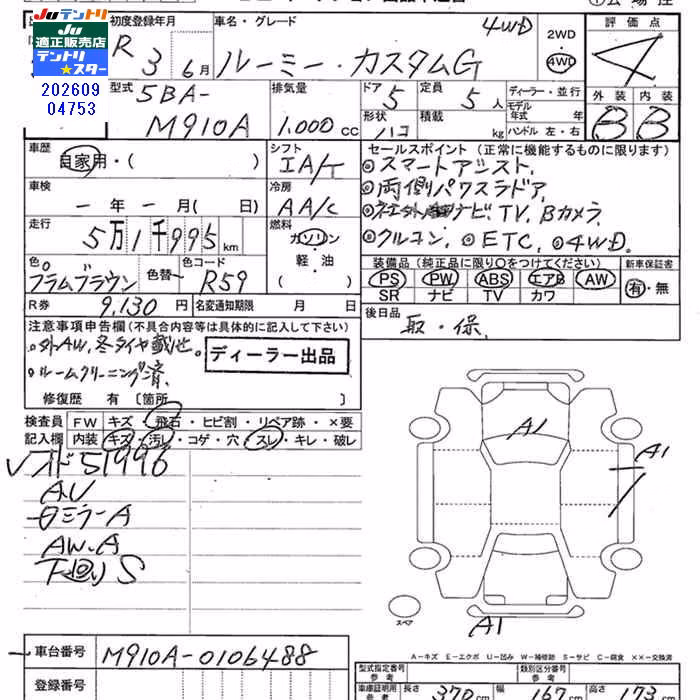 JUテントリ
JU
適正販売店
テントリ
★スター
202609
04753
初度登録年月
R 3 6月
車名・グレード
4WD
ルーミー・カスタムG
2WD
4WD
評価点
4
型式
5BA-
M910A
排気量
1.000 cc
ドア
5
定員
5人
形状
ハコ
積載
kg
ディーラー・並行
モデル
年式 年
ハンドル 左・右
外装 内装
B B
車歴
自家用・( )
シフト
IA/T
車検
ー年ー月( 日)
冷房
AA/C
走行
5万1千995km
燃料
ガソリン
軽・油
( )
色
プラムブラウン
色替
カラーコード
R59
R券
9,130円
名変通知期限 月 日
セールスポイント(正常に機能するものに限ります)
◎スマートアシスト.
◎両側パワスラドア.
ナビ.TV.Bカメラ.
◎クルコン.◎ETC.◎4WD.
装備品(純正品に限り○をつけてください)
新車保証書
PS PW ABS エアB AW
SR ナビ TV カワ
有・無
後日品
取・保.
注意事項申告欄(不具合内容等は具体的に記入して下さい)
外AW.冬タイヤ載せ.
ルームクリーニング済.
ディーラー出品
修復歴 有 〔箇所 〕
検査員
記入欄
FW キズ・飛石・ヒビ割・リペア跡・×要
内装 キズ・汚レ・コゲ・穴・スレ・キレ・破レ
51996
AU
ミラーA
AW.A
下回りS
A1
A1
A1
スペア
A−キズ E−エクボ U−凹み W−補修跡 S−サビ C−腐食 ××−交換済
車台番号
M910A-0106488
登録番号
型式指定番号
参考
類別区分番号
参考
車庫証明用
参考
長さ 370cm 幅 167cm 高さ 173cm